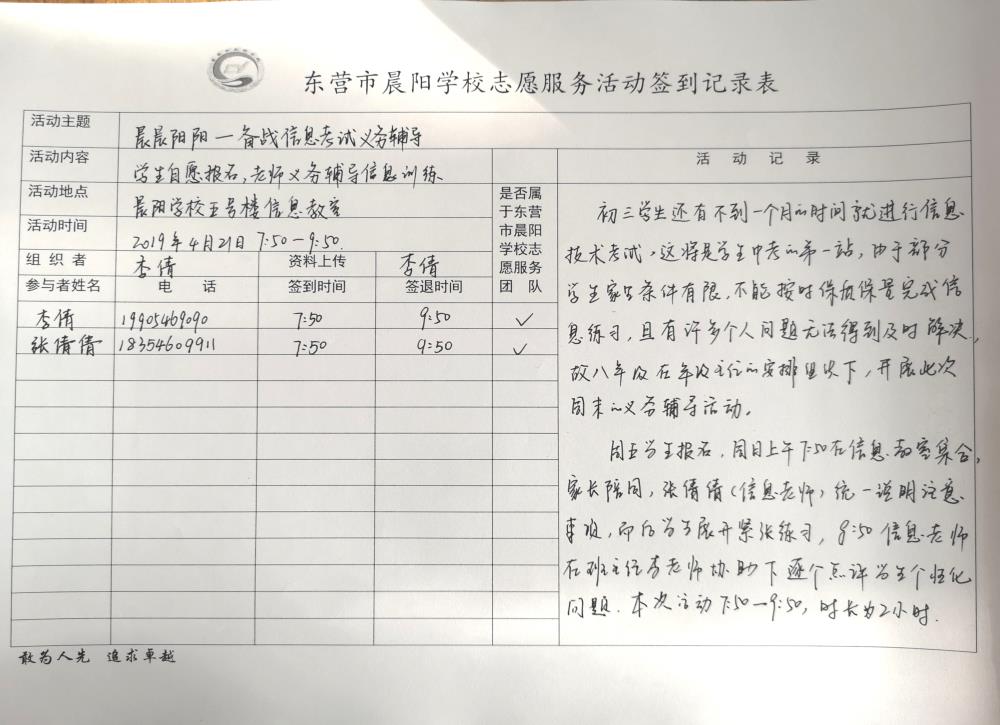 东营市晨阳学校志愿服务活动签到记录表
活动主题 晨晨阳阳—备战信息考试义务辅导
活动内容 学生自愿报名,老师义务辅导信息训练
活动地点 晨阳学校五号楼信息教室
活动时间 2019年4月21日 7:50-9:50.
组织者 李倩 资料上传 李倩
参与者姓名 电话 签到时间 签退时间
是否属
于东营
市晨阳
学校志
愿服务
团队
李倩 19905469090 7:50 9:50 ✓
张倩倩 18354609911 7:50 9:50 ✓
活动记录
初三学生还有不到一个月的时间就进行信息
技术考试,这将是学生中考的第一站,由于部分
学生家长条件有限,不能按时保质保量完成信
息练习,且有许多个人问题无法得到及时解决,
故八年级在年级主任的安排组织下,开展此次
周末的义务辅导活动。
周五学生报名,周日上午7:50在信息教室集合,
家长陪同,张倩倩(信息老师)统一说明注意
事项,而后学生展开紧张练习,9:50信息老师
在班主任李老师协助下逐个点评学生个性化
问题.本次活动7:50—9:50,时长为2小时.
敢为人先 追求卓越